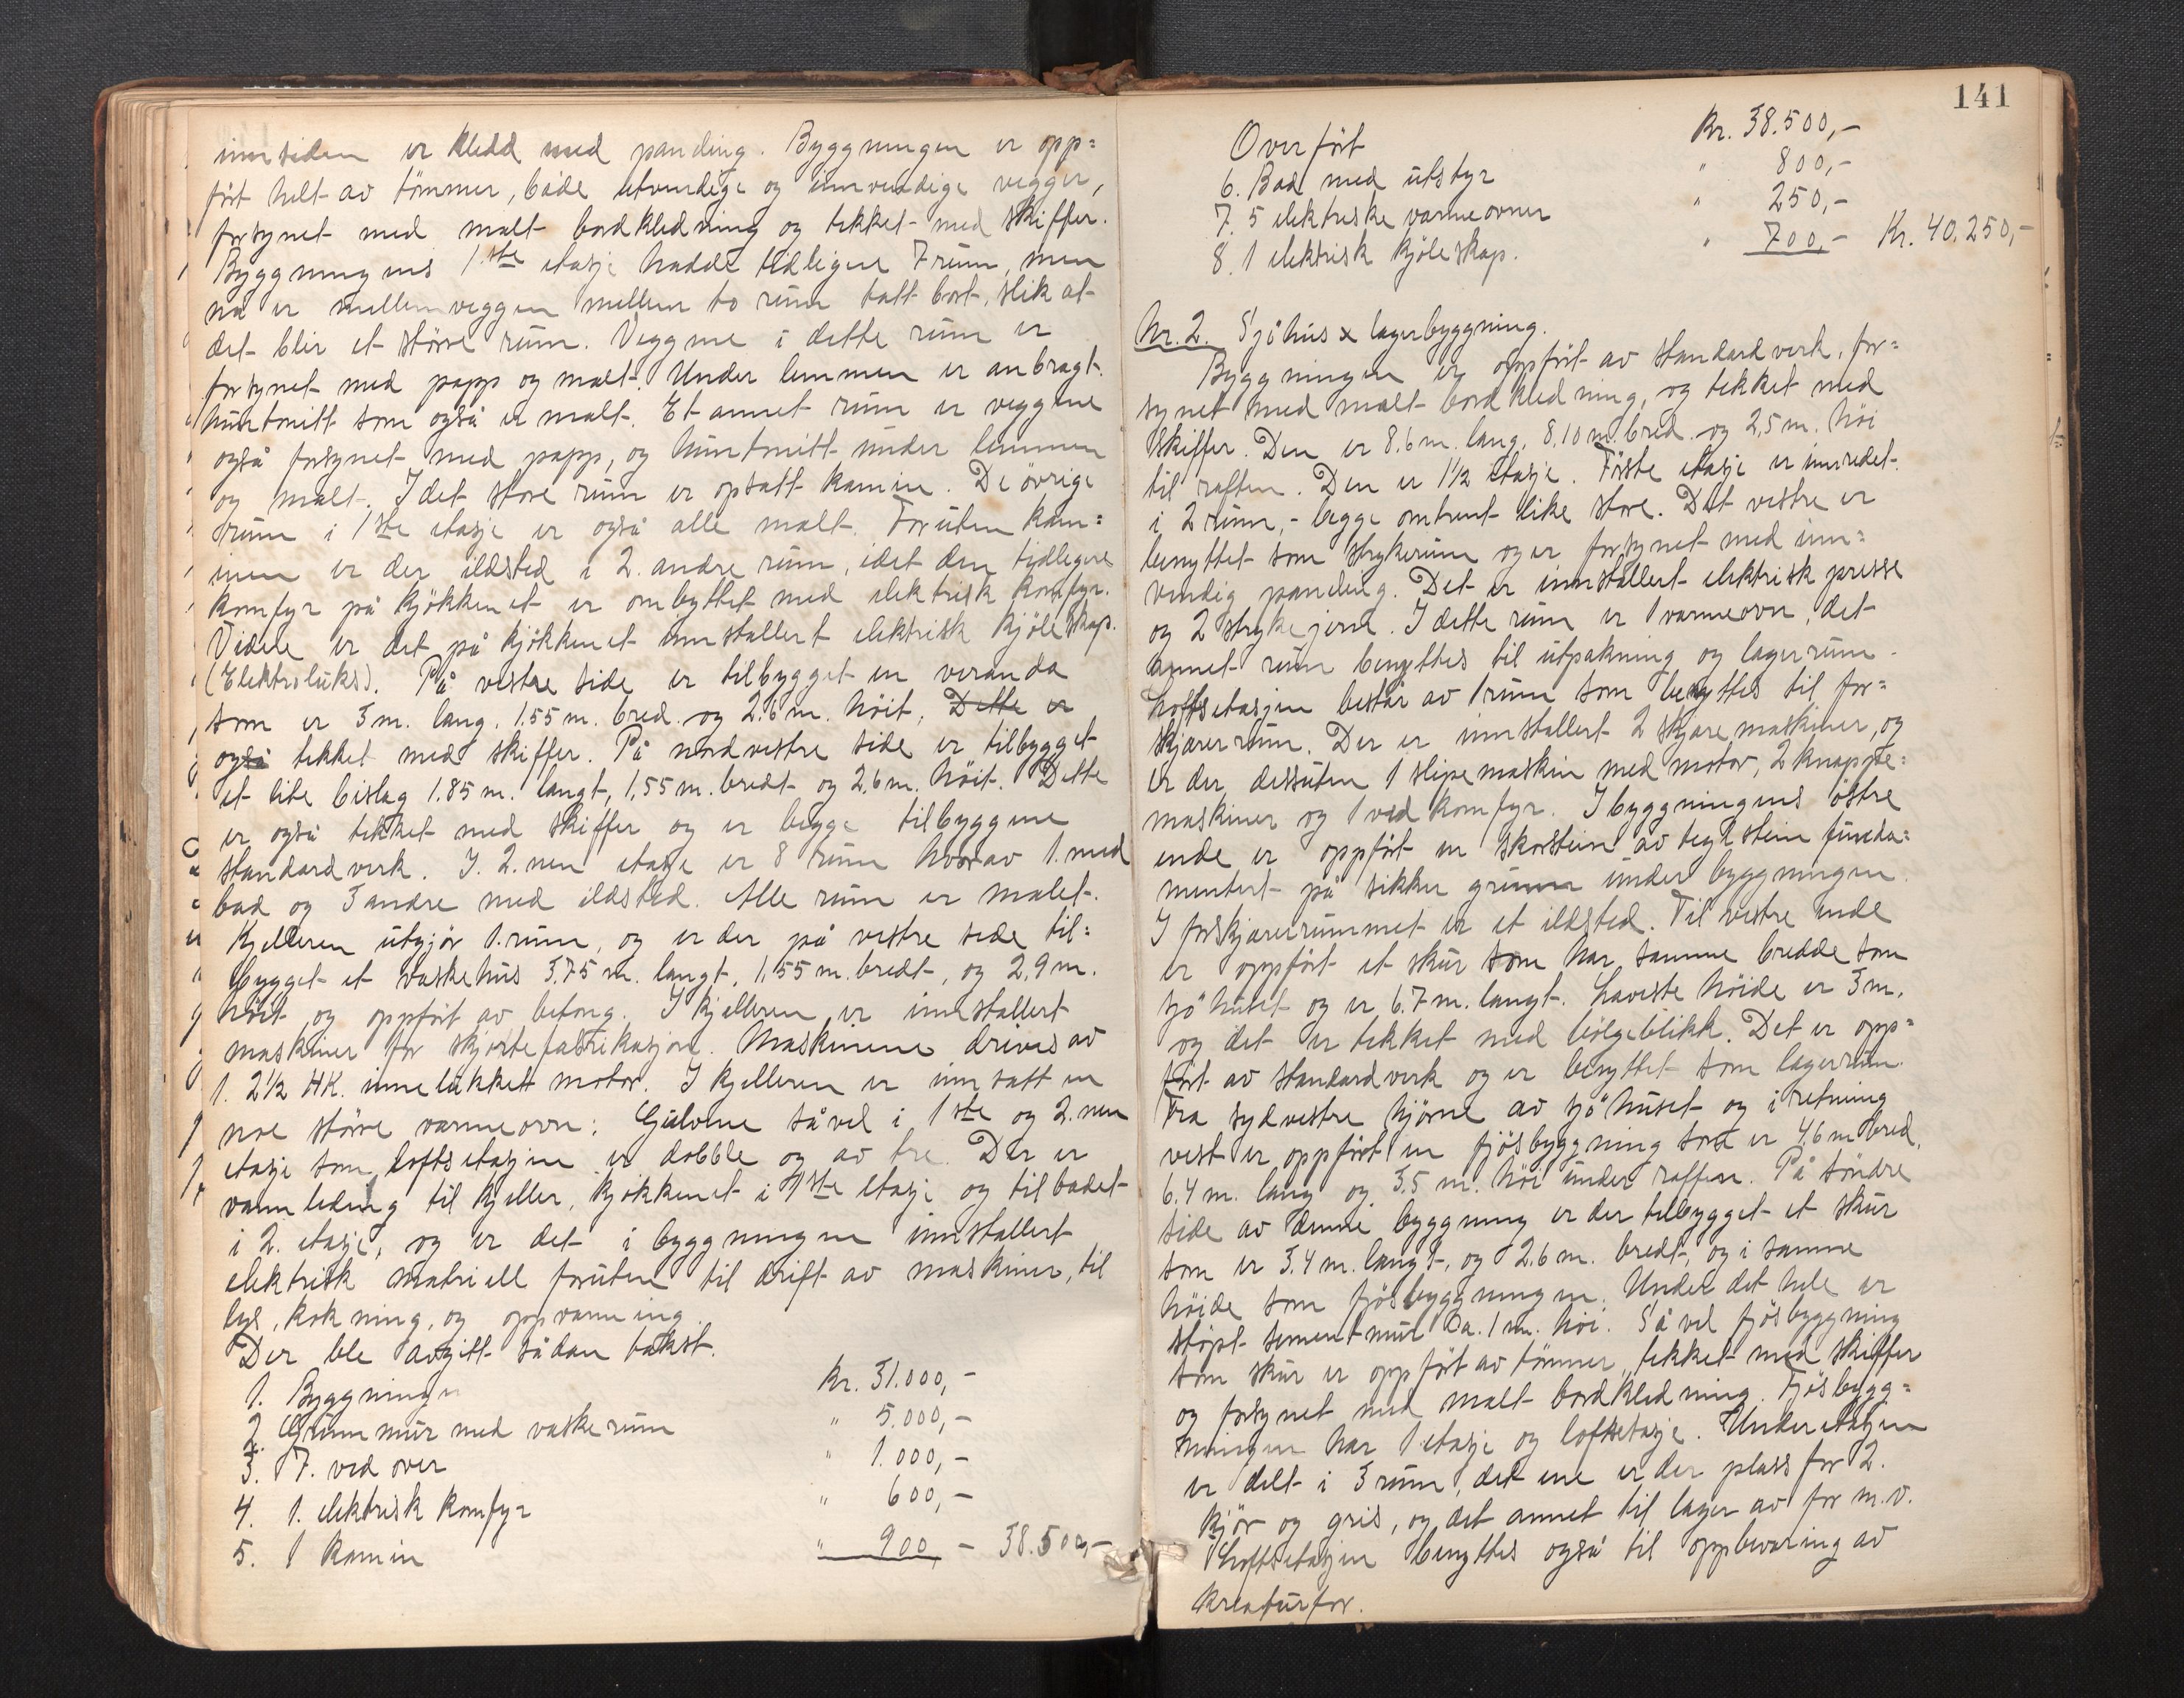 innsiden er kledd med panding. Byggningen er opp=
ført helt av tømmer, både utvendige og innvendige vegger,
forsynet med malt bordkledning og tekket med skiffer.
Byggningens 1ste etasje hadde tidligere 7 rum, men
nå er mellemveggen mellem to rum tatt bort, slik at
det blir et større rum. Veggene i dette rum er
forsynet med papp og malt. Under lemmen er anbragt
huntonitt som også er malt. Et annet rum er veggene
også forsynet med papp, og huntonitt under lemmen
og malt. I det store rum er opsatt kamin. De øvrige
rum i 1ste etasje er også alle malt. Foruten kam=
inen er der ildsted i 2. andre rum, idet den tidligere
komfyr på kjøkkenet er ombyttet med elektrisk komfyr.
Videre er det på kjøkkenet innstallert elektrisk kjøleskap.
(Elektroluks). På vestre side er tilbygget en veranda
som er 3 m. lang. 1.55 m. bred. og 2.6 m. høit, Dette er
også tekket med skiffer. På nordvestre side er tilbygget
et lite bislag 1.85 m. langt, 1,55 m. bredt og 2,6 m. høit. Dette
er også tekket med skiffer og er begge tilbyggene
standardverk. I. 2.nen etasje er 8 rum hvorav 1. med
bad og 3 andre med ildsted. Alle rum er malet.
Kjelleren utgjør 1. rum, og er der på vestre side til=
bygget et vaskehus 3.75 m. langt, 1,55 m. bredt, og 2,9 m.
høit og oppført av betong. I kjelleren er innstallert
maskiner for skjortefabrikasjon. Maskinene drives av
1. 2½ HK. innelukkett motor. I kjelleren er innsatt en
noe større varmeovn. Gulvene såvel i 1ste og 2.nen
etasje som loftsetasjen er dobble og av tre. Der er
vannledning til kjeller, kjøkkenet i 1ste etasje og til badet
i 2. etasje, og er det i byggningen innstallert
elektrisk matriell foruten til drift av maskiner, til
lys, kokning, og oppvarming
Der ble avgitt sådan takst.
1. Byggningen Kr. 31.000,-
2. Grunnmur med vaskerum " 5.000,-
3. 7. ved over " 1.000,-
4. 1. elektrisk komfyr " 600,-
5. 1 kamin " 900,- 38.500,-
141
Overført Kr. 38.500,-
6. Bad med utstyr " 800,-
7. 5 elektriske varmeovner " 250,-
8. 1 elektrisk kjøleskap. " 700,- Kr. 40.250,-
Nr. 2. Sjöhus x lagerbyggning.
Byggningen er oppført av standardverk, for=
synet med malt bordkledning, og tekket med
skiffer. Den er 8.6 m. lang, 8.10 m. bred. og 2,5 m. høi
til raften. Den er 1½ etasje. Første etasje er innredet
i 2 rum, - begge omtrent like store. Det vestre er
benyttet som strykerum og er forsynet med inn=
vendig paneling. Det er innstallert elektrisk presse
og 2 strykejern. I dette rum er 1 varmeovn, det
annet rum benyttes til utpakning og lagerrum.
Loftsetasjen består av 1 rum som benyttes til for=
skjærerrum. Der er innstallert 2 skjæremaskiner, og
er der, dessuten 1 slipemaskin med motor, 2 knappe=
maskiner og 1 ved komfyr. I byggningens østre
ende er oppført en skorstein av teglstein funda=
mentert på sikker grunn under byggningen.
I forskjærerrummet er et ildsted. Til vestre ende
er oppført et skur som har samme bredde som
sjöhuset og er 6.7 m. langt. Laveste høide er 3 m.
og det er tekket med bølgeblikk. Det er opp=
ført av standardverk og er benyttet som lagerrum
Fra sydvestre hjørne av sjöhuset og i retning
vest er oppført en fjøsbyggning som er 4.6 m bred,
6.4 m. lang og 3.5 m. høi under raften. På søndre
side av denne byggning er der tilbygget et skur
som er 3.4 m. langt, og 2.6 m. bredt, og i samme
høide som fjøsbyggningen. Under det hele er
støpt sementmur Ca. 1 m. høi. Så vel fjøsbyggning
som skur er oppført av tømmer, tekket med skiffer
og forsynet med malt bordkledning. Fjøsbygg=
ningen har 1 etasje og loftsetasje. Underetasjen
er delt i 3 rum, det ene er der plass for 2.
kjør og gris, og det annet til lager av for m.v.
Loftsetasjen benyttes også til oppbevaring av
kreaturfor.